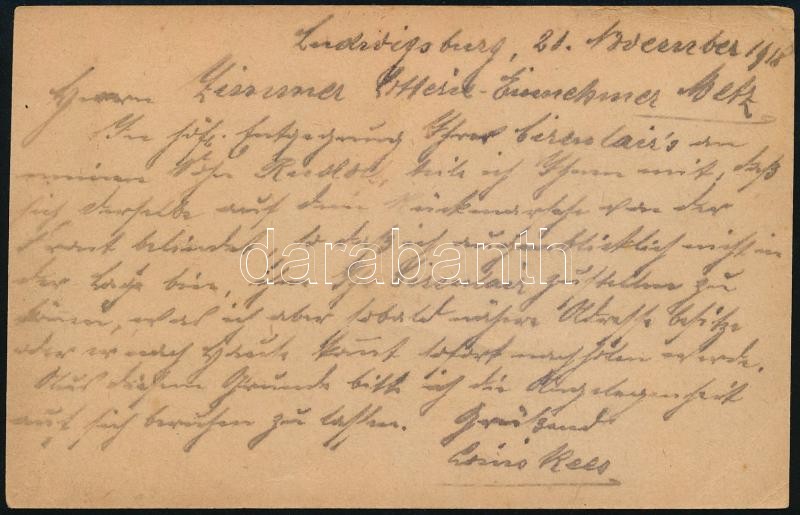 Ludwigsburg, 21. November 1918
Herrn Zimmer Lotterie-Einnehmer Metz
In höfl. Entgegnung Ihres Circulair's an
meinen Sohn Rudolf, teile ich Ihnen mit, daß
sich derselbe auf dem Rückmarsche von der
Front befindet, so daß ich augenblicklich nicht in
der Lage bin, Ihr Circulair zustellen zu
können, was ich aber sobald nähere Adresse besitze
oder er nach Hause kommt sofort nachholen werde.
Aus diesem Grunde bitte ich die Angelegenheit
auf sich beruhen zu lassen. Grüßend
Louis Kees
darabanth